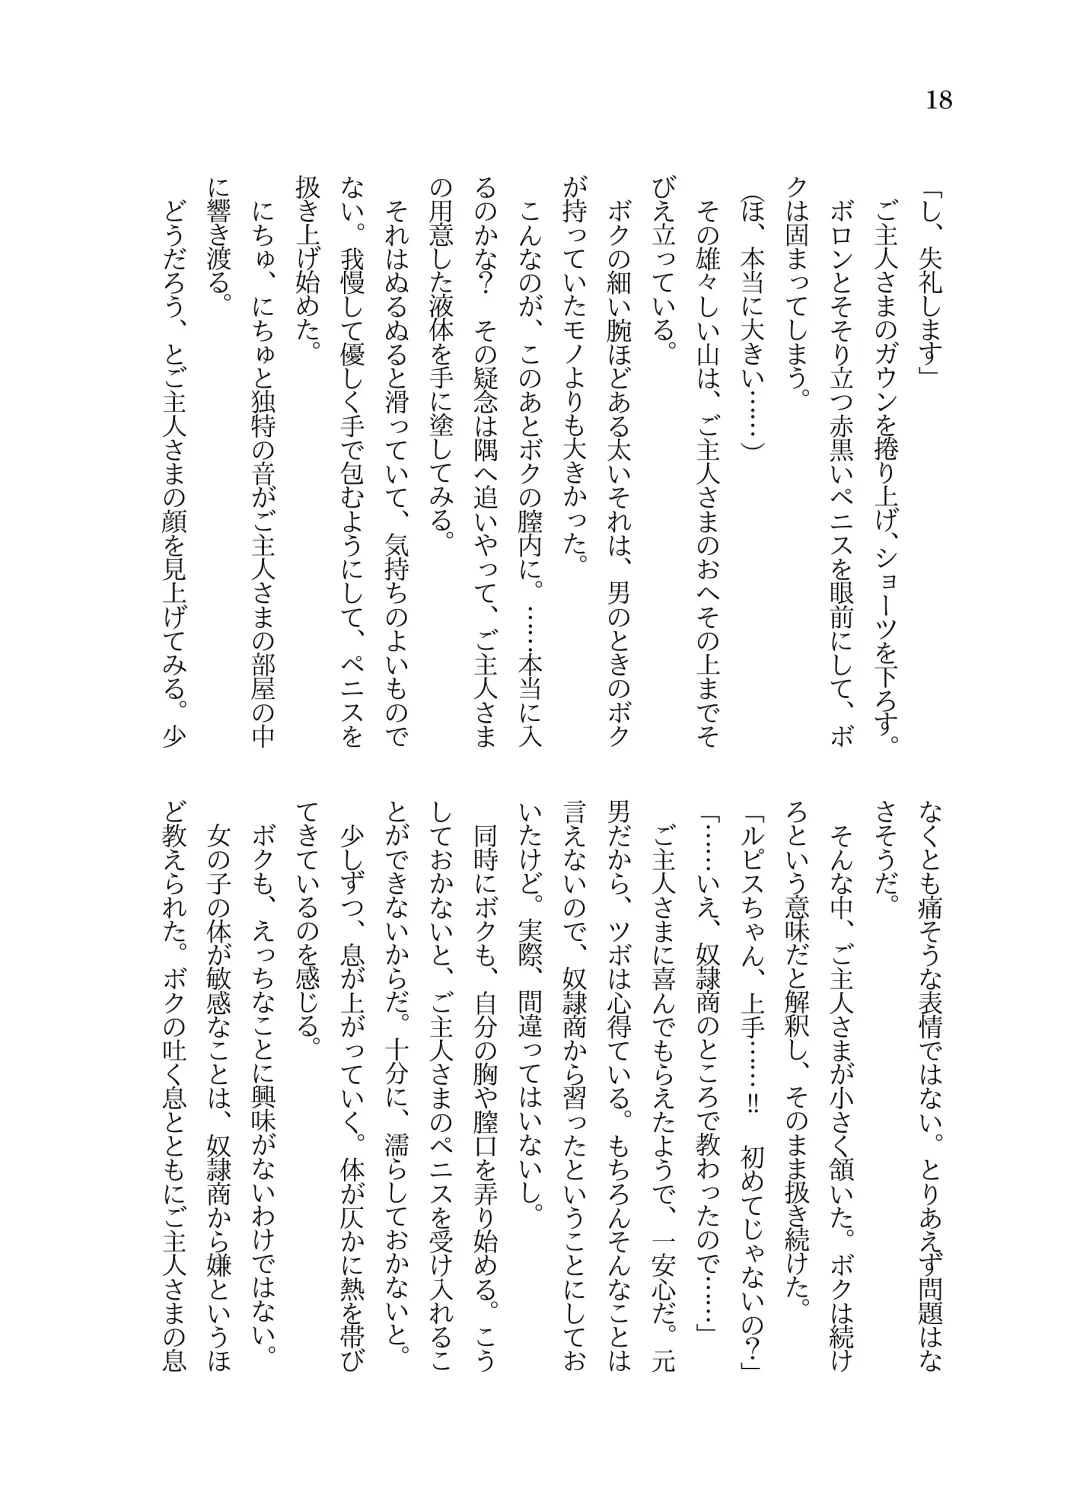 18
「し、失礼します」
　ご主人さまのガウンを捲り上げ、ショーツを下ろす。
　ボロンとそそり立つ赤黒いペニスを眼前にして、ボ
クは固まってしまう。
（ほ、本当に大きい……）
　その雄々しい山は、ご主人さまのおへその上までそ
びえ立っている。
　ボクの細い腕ほどある太いそれは、男のときのボク
が持っていたモノよりも大きかった。
　こんなのが、このあとボクの膣内に。……本当に入
るのかな？　その疑念は隅へ追いやって、ご主人さま
の用意した液体を手に塗してみる。
　それはぬるぬると滑っていて、気持ちのよいもので
ない。我慢して優しく手で包むようにして、ペニスを
扱き上げ始めた。
　にちゅ、にちゅと独特の音がご主人さまの部屋の中
に響き渡る。
　どうだろう、とご主人さまの顔を見上げてみる。少
なくとも痛そうな表情ではない。とりあえず問題はな
さそうだ。
　そんな中、ご主人さまが小さく頷いた。ボクは続け
ろという意味だと解釈し、そのまま扱き続けた。
「ルピスちゃん、上手……!!　初めてじゃないの？」
「……いえ、奴隷商のところで教わったので……」
　ご主人さまに喜んでもらえたようで、一安心だ。元
男だから、ツボは心得ている。もちろんそんなことは
言えないので、奴隷商から習ったということにしてお
いたけど。実際、間違ってはいないし。
　同時にボクも、自分の胸や膣口を弄り始める。こう
しておかないと、ご主人さまのペニスを受け入れるこ
とができないからだ。十分に、濡らしておかないと。
　少しずつ、息が上がっていく。体が仄かに熱を帯び
てきているのを感じる。
　ボクも、えっちなことに興味がないわけではない。
　女の子の体が敏感なことは、奴隷商から嫌というほ
ど教えられた。ボクの吐く息とともにご主人さまの息